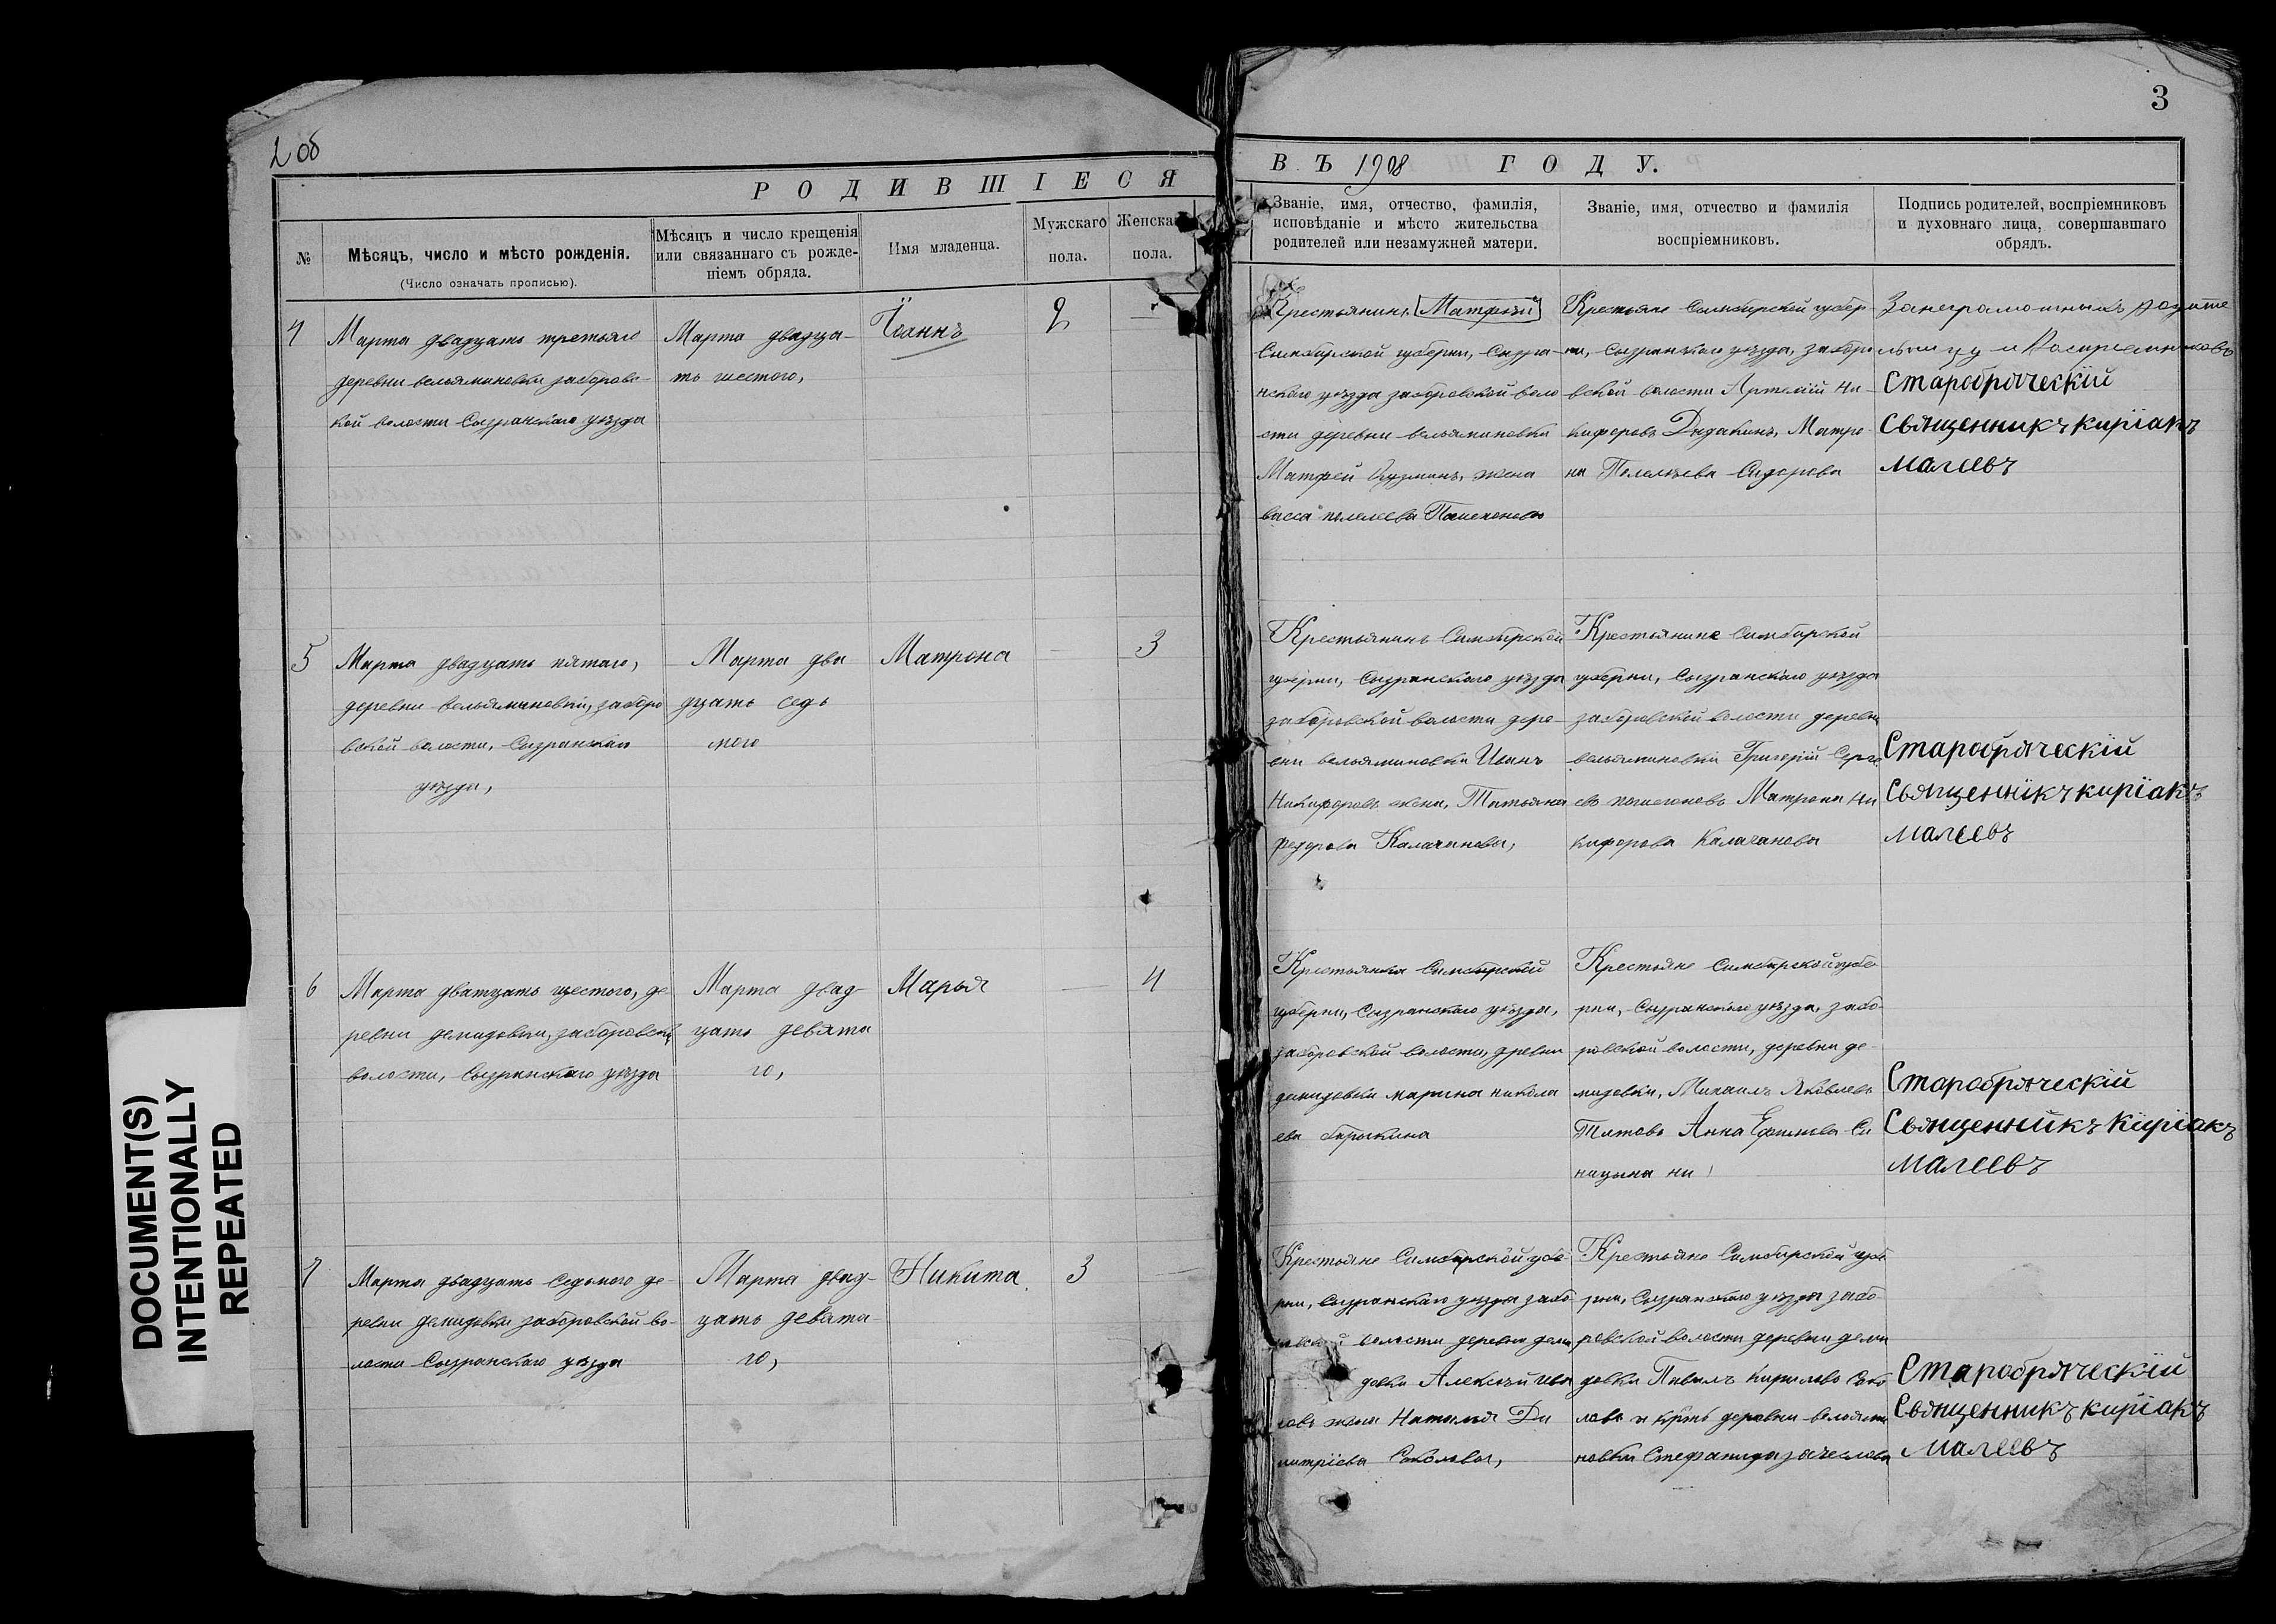 2 об
3
РОДИВШІЕСЯ
ВЪ 1908 ГОДУ.
№
Мѣсяцъ, число и мѣсто рожденія.
(Число означать прописью).
Мѣсяцъ и число крещенія
или связаннаго съ рожде-
ніемъ обряда.
Имя младенца.
Мужскаго
пола.
Женска
пола.
Званіе, имя, отчество, фамилія,
исповѣданіе и мѣсто жительства
родителей или незамужней матери.
Званіе, имя, отчество и фамилія
воспріемниковъ.
Подпись родителей, воспріемниковъ
и духовнаго лица, совершавшаго
обрядъ.
4
Марта двадцать третьяго
деревни вельяминовки заборовс-
кой волости Сызранскаго уѣзда
Марта двадца-
ть шестого,
Іоаннъ
2
Крестьянинъ Матфѣй
Симбирской губерни, Сызра-
нскаго уѣзда заборовской воло
сти деревни вельяминовки
Матфей Кузминъ, жена
васса
Крестьяне Симбирской губер-
ни, Сызранскаго уѣзда, заборо
вской волости Артемій Ни-
кифоровъ Дядакинъ, Матро-
на Сидорова
Занеграмотныхъ родите
и Воспріемниковъ
Старобряческій
Священникъ киріакъ
малеевъ
5
Марта двадцать пятаго,
деревни вельяминовки, заборо
вской волости, Сызранскаго
уѣзда,
Марта два
дцать седь
мого
Матрона
3
Крестьянинъ Симбирской
губерни, Сызранскаго уѣзда
заборовской волости дере-
вни вельяминовки Иванъ
Никифоровъ жена, Татьяна
федорова Калачанова,
Крестьянине Симбирской
губерни, Сызранскаго уѣзда
заборовской волости деревни
вельяминовки Григорій Серге
евъ Матрона Ни
кифорова Калачанова
Старобряческій
Священникъ киріакъ
малеевъ
6
Марта дватцать шестого, де-
ревни демидовки, заборовской
волости, Сызранскаго уѣзда
Марта двад-
цать девята
го,
Марья
4
Крестьянка Симбирской
губерни, Сызранскаго уѣзда,
заборовской волости, древни
демидовки марина никола
ева
Крестьяне Симбирской губе
рни, Сызранскаго уѣзда, забо-
ровской волости, деревни де-
мидовки, Михаилъ Яковлевъ
Титовъ Анна Ефимова Си
ницына
Старобряческій
Священникъ Киріакъ
малеевъ
7
Марта двадцать седьмого де-
ревни демидовки заборовской во-
лости Сызранскаго уѣзда
Марта двад-
цать девята-
го,
Никита
3
Крестьяне Симбирской губе
рни, Сызранскаго уѣзда забо
волости деревни деми
довки Алексѣй Ива
новъ жена Наталья Ди
митріева Соколова,
Крестьяне Симбирской губе
рни, Сызранскаго уѣзда забо-
ровской волости деревни деми
довки Павелъ Кириловъ Соко
ловъ и деревни вельями
новки Стефанида
Старобряческій
Священникъ киріакъ
Малеевъ
DOCUMENT(S)
INTENTIONALLY
REPEATED